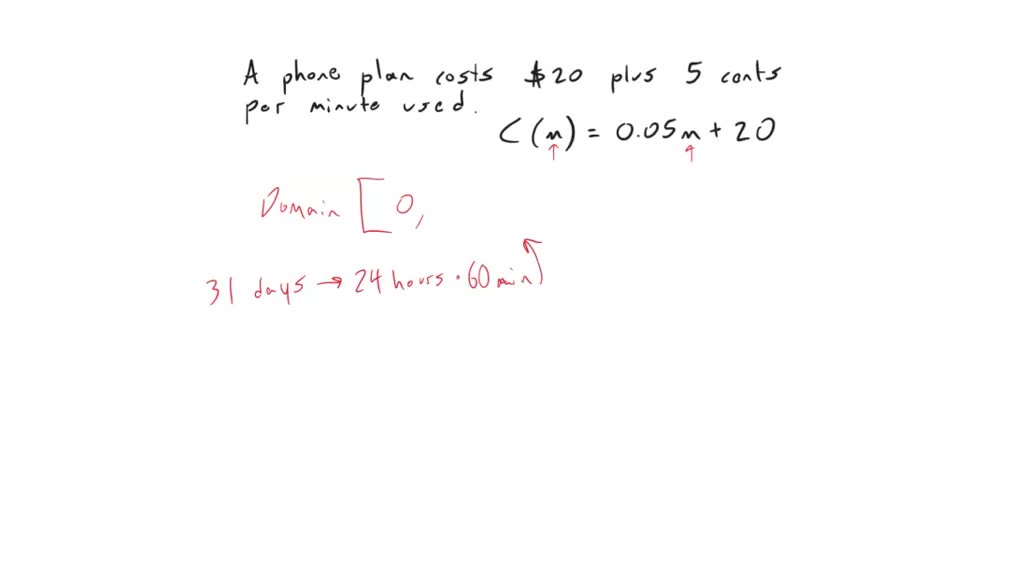 A phone plan costs $20 plus 5 cents
per minute used.
C(m) = 0.05m + 20
Domain [0,
31 days → 24 hours · 60 min